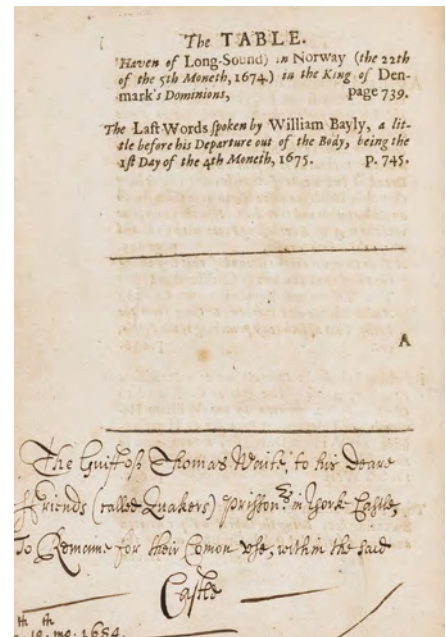 The TABLE.
Haven of Long-Sound) in Norway (the 22th
of the 5th Moneth, 1674.) in the King of Den-
mark's Dominions, page 739.
The Laſt Words ſpoken by William Bayly, a lit-
tle before his Departure out of the Body, being the
1ſt Day of the 4th Moneth, 1675. p. 745.
A
The Guift of Thomas Waite, to his deare
ffriends (called Quakers) priſon.rs in Yorke Caſtle,
To Remaine for their Comon vſe, within the said
Caſtle
th th
10. mo. 1684.